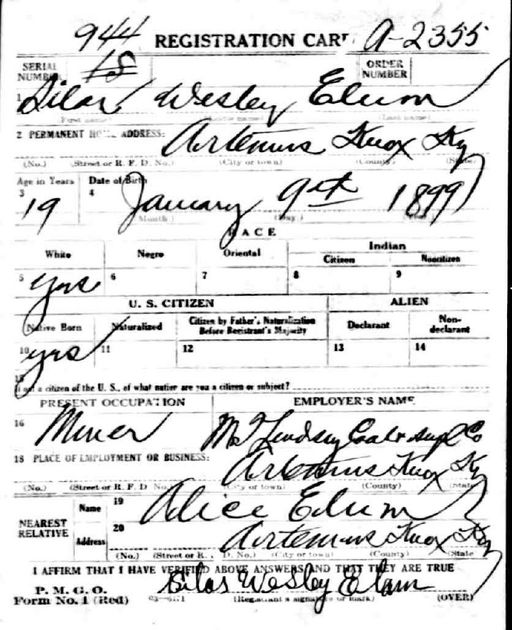 944 REGISTRATION CARD A-2355
SERIAL NUMBER 18 ORDER NUMBER
1 Silas Wesley Elum
(First name) (Last name)
2 PERMANENT HOME ADDRESS: Artemus Knox Ky
(No.) (Street or R. F. D. No.) (City or town) (County) (State)
Age in Years Date of Birth
3 19 4 January 9th 1899
(Month.) (Day.)
RACE
White Negro Oriental Indian
Citizen Noncitizen
5 yes 6 7 8 9
U. S. CITIZEN ALIEN
Native Born Naturalized Citizen by Father's Naturalization Before Registrant's Majority Declarant Non-declarant
10 yes 11 12 13 14
15
If not a citizen of the U. S., of what nation are you a citizen or subject?
PRESENT OCCUPATION EMPLOYER'S NAME
16 Miner Lindsey Coal Co
18 PLACE OF EMPLOYMENT OR BUSINESS: Artemus Knox Ky
(No.) (Street or R. F. D. No.) (City or town) (County) (State)
NEAREST RELATIVE Name 19 Alice Elum
Address 20 Artemus Knox Ky
(No.) (Street or R. F. D. No.) (City or town) (County) (State
I AFFIRM THAT I HAVE VERIFIED ABOVE ANSWERS AND THAT THEY ARE TRUE
P. M. G. O.
Form No. 1 (Red) Silas Wesley Elam
(Registrant's signature or mark) (OVER)